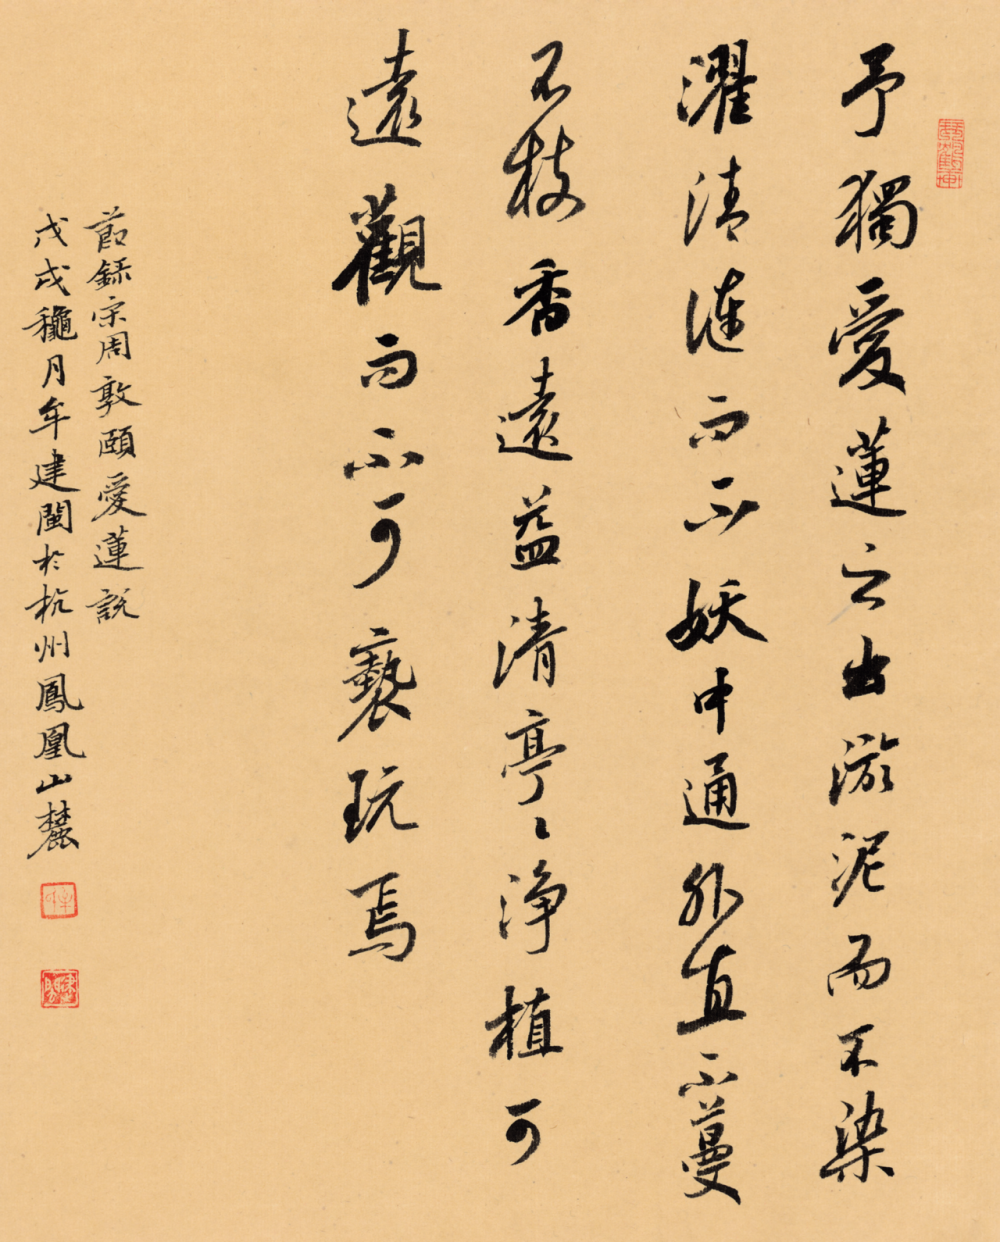 予獨愛蓮之出淤泥而不染
濯清漣而不妖中通外直不蔓
不枝香遠益清亭〻淨植可
遠觀而不可褻玩焉
節錄宋周敦頤愛蓮說
戊戌穐月牟建閩於杭州鳳凰山麓